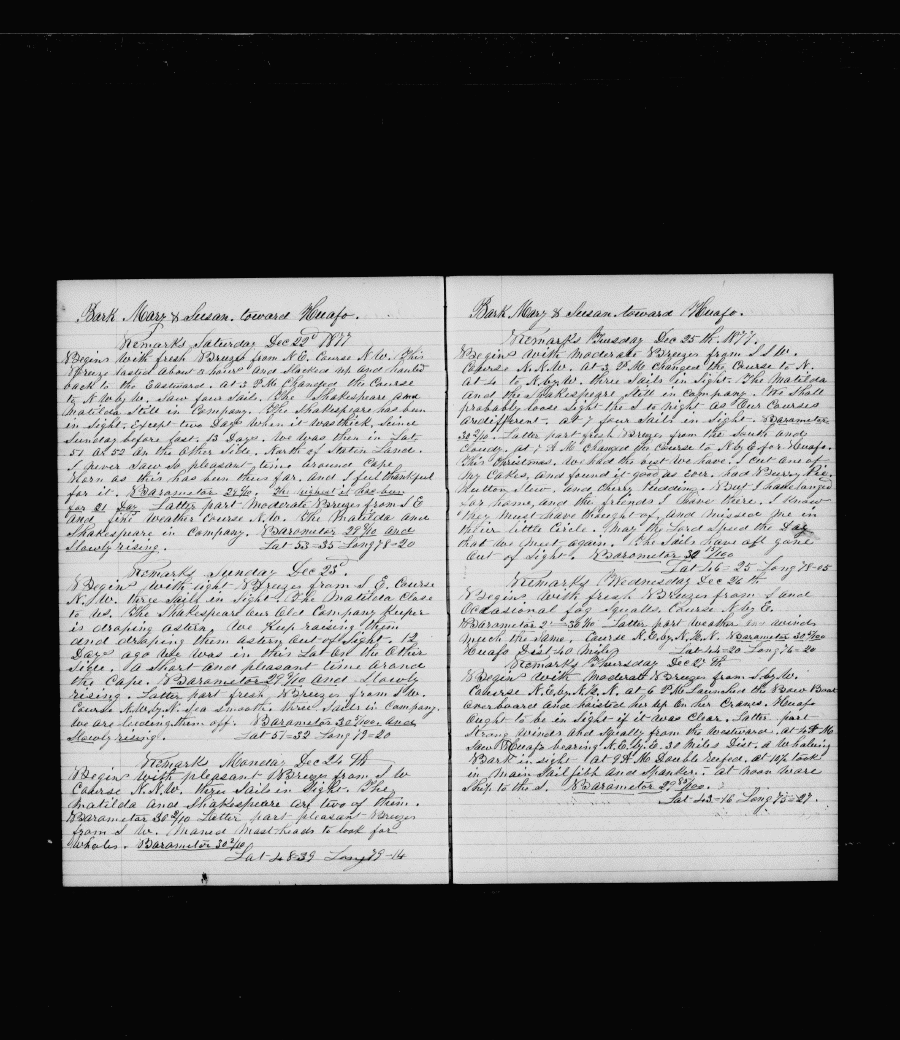 Bark Mary & Susan. toward Huafo.
Remarks Saturday Dec 22d 1877
Begins with fresh Breeze from N.E. Course N.W. This
Breeze lasted about 3 hours and Slacked up and hauled
back to the Eastward. at 3 P.M Changed the Course
to N.W by W. Saw four Sail. The Shakespeare and
Matilda Still in Company. The Shakespeare has been
in Sight. Except two Days when it was thick, Scince
Sunday before last. 13 Days. We was then in Lat
51 or 52 on the Other Side. North of Staten Land.
I never Saw So pleasant time around Cape
Horn as this has been thus far. and I feel thankful
for it. Barometor The highest it has been
for 21 Days. Latter part Moderate Breezes from S E
and fine weather Course N.W. The Matilda and
Shakespeare in Company. Barometor and
Slowly rising. Lat 53=35 Long 78=20
Remarks Sunday Dec 23d.
Begins with light Breezes from S. E. Course
three Sails in Sight. The Matilda Close
to us. The Shakespeare our Old Company Keeper
is droping astern. We Keep raising them
and droping them astern out of Sight. 12
Days ago We was in this Lat On the Other
Side. A Short and pleasant time around
the Cape. Barometor and Slowly
rising. Latter part fresh Breezes from S.W.
Course N.W. by N. Sea Smooth. three Sails in Company.
We are them off. Barometor and
Slowly rising. Lat 51=32 Long 79=20
Remarks Monday Dec 24 th
Begins with pleasant Breezes from S W
Course N.N.W. three Sails in Sight. The
Matilda and Shakespeare are two of them.
Barometor Latter part pleasant Breezes
from S W. Maned Mast-heads to look for
Whales. Barometor
Lat 48=39 Long 79=14
Bark Mary & Susan. toward Huafo.
Remarks Tuesday Dec 25 th. 1877.
Begins with moderate Breezes from S S W.
Course N.N.W. At 3 P M Changed the Course to N.
at 4 to N. by W. three Sails in Sight. The Matilda
and the Shakespeare Still in Company. We Shall
probably loose Sight the S to night as Our Courses
are different. at 7 four Sails in Sight. Barometor
Latter part fresh Breezes from the South and
Cloudy. at 7 A M Changed the Course to N by E for Huafo.
This Christmas. We had the best we have. I Cut one of
My Cakes, and found it good as Ever. had Pie
Mutton Stew, and Cherry Pudding. But I have longed
for home, and the friends I have there. I know
they must have thought of, and missed me in
their little Circle. May the Lord Speed the Day
that we meet again. The Sails have all gone
Out of Sight. Barometor
Lat 46=25 Long 78=05
Remarks Wednesday Dec 26 th
Begins with fresh Breezes from S and
Occasional fog Squalls Course N by E.
Barometor Latter part weather and winds
much the Same. Course N.E. by N.½ N. Barometor
Huafo Dist 40 Miles Lat 44=20 Long 76=20
Remarks Thursday Dec 27 th
Begins With moderate Breezes from S. by W.
Course N.E. by N.½ N. at 6 P M Launched the Bow Boat
Overboard and hoisted her up On her Cranes. Huafo
Ought to be in Sight if it was Clear. Latter part
Strong winds and Squally from the Westward. at 4 A M
Saw Huafo bearing N.E. by E. 30 Miles Dist. a Whaling
Bark in Sight. at 9 A M Double Reefed. at 10½ took
in Main Sail Jibb and Spanker. at noon Wore
Ship to the S. Barometor
Lat 43=16 Long 75=27.